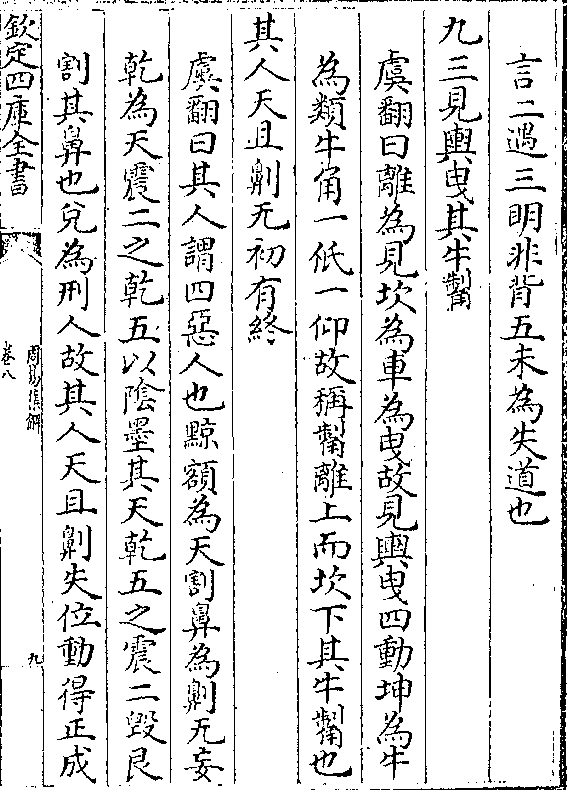 言二遇三明非背五未為失道也
九三見輿曳其牛觢
虞翻曰離為見坎為車為曳故見輿曳四動坤為牛
為類牛角一低一仰故稱觢離上而坎下其牛觢也
其人天且劓无初有終
虞翻曰其人謂四惡人也黥額為天割鼻為劓无妄
乾為天震二之乾五以陰墨其天乾五之震二毀艮
割其鼻也兌為刑人故其人天且劓失位動得正成
欽定四庫全書
周易集解
卷八
九